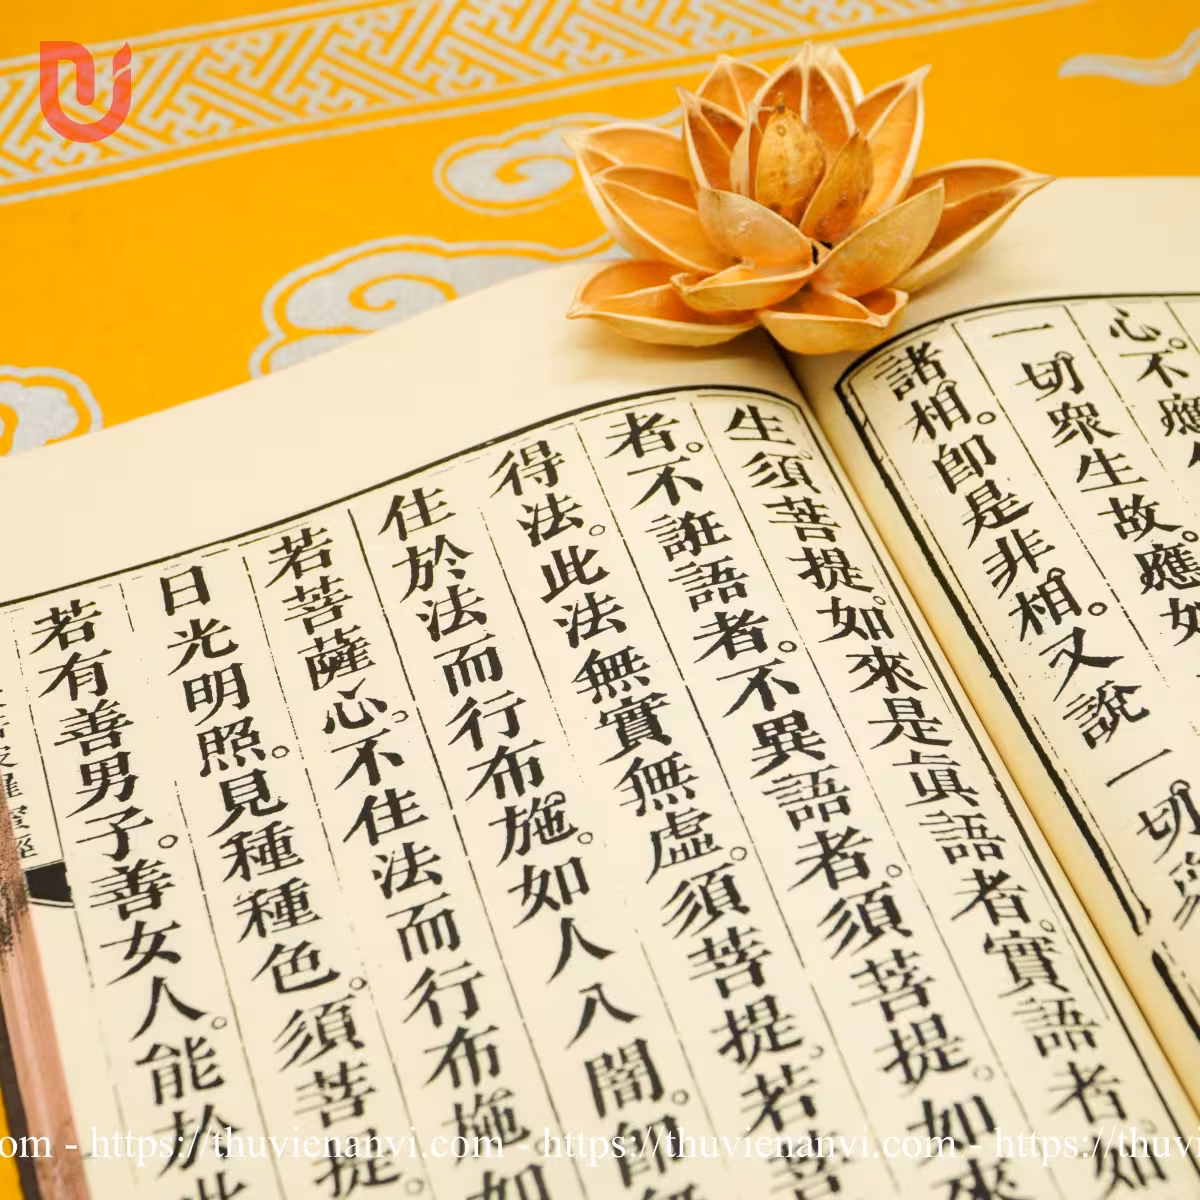 心。不應
一切眾生故。應如
諸相。卽是非相。又說一切眾
生。須菩提。如來是眞語者。實語者。如
者。不誑語者。不異語者。須菩提。如來
得法。此法無實無虛。須菩提。若菩
住於法而行布施。如人入闇。卽無
若菩薩心。不住法而行布施。如
日光明照。見種種色。須菩提。
若有善男子。善女人。能於此
羅蜜經
.com - https://thuvienanvi.com - https://thuvienanvi.com - https://thu